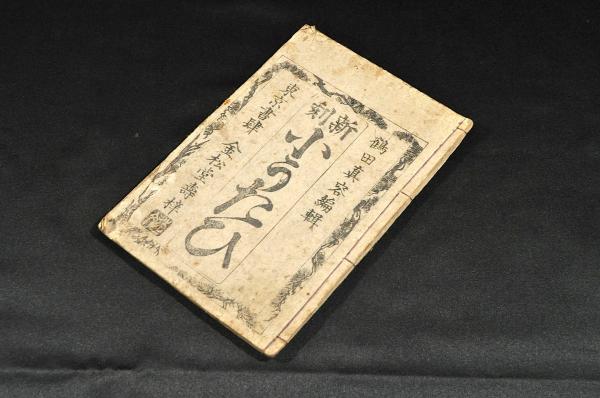 鶴田真容編輯
新刻
小うたひ
東京書肆
金松堂壽梓